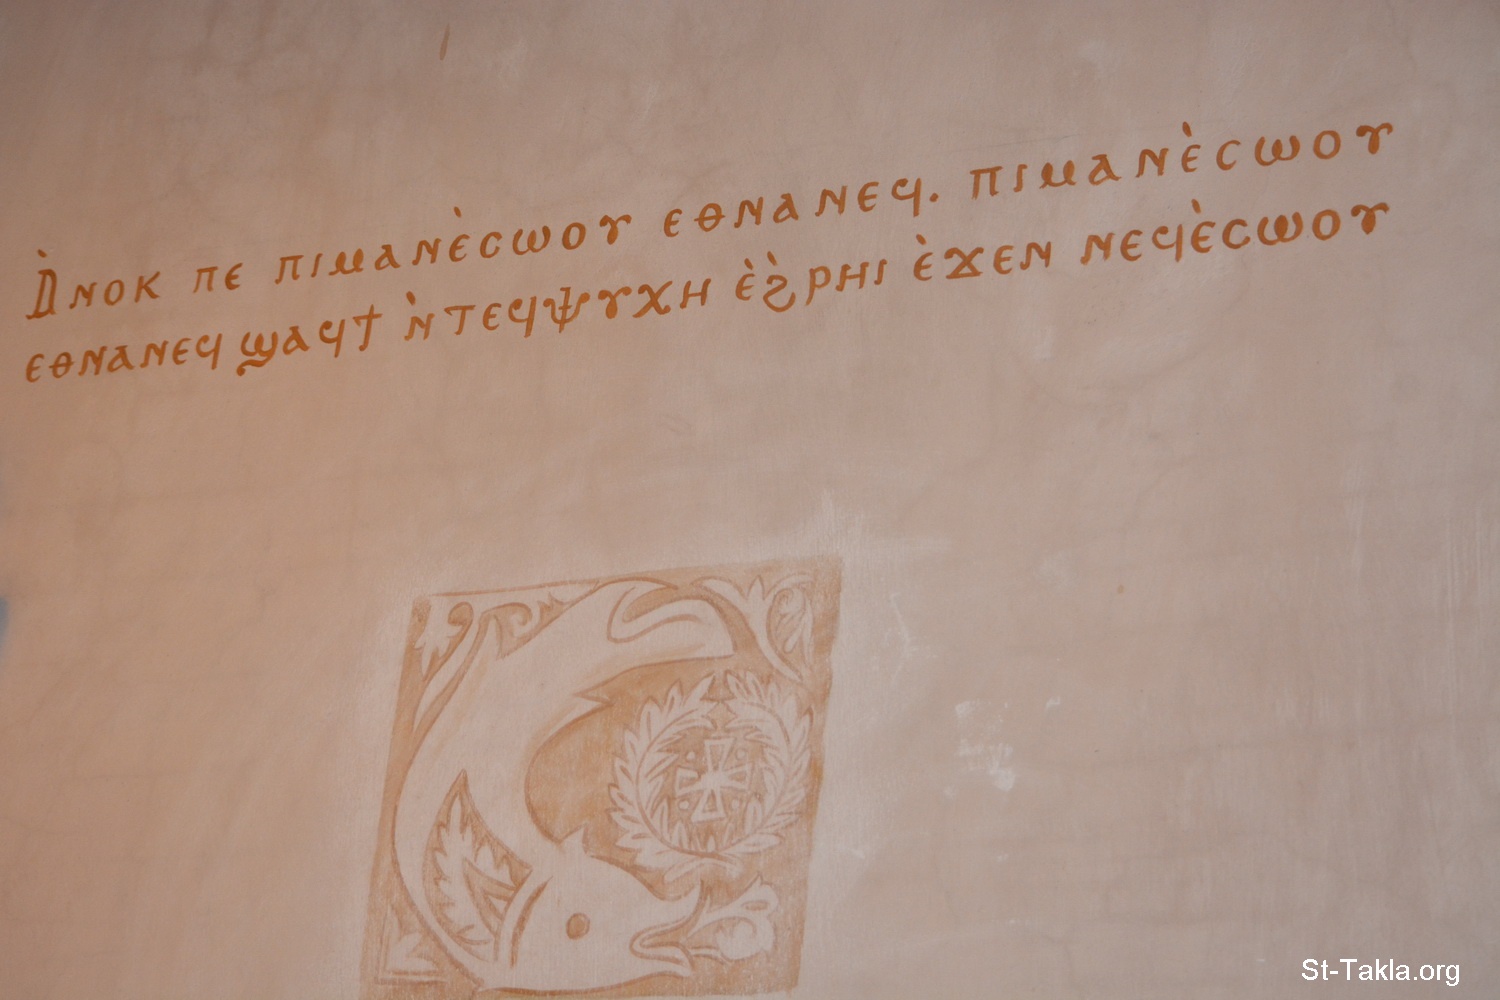 Ⲁ̀ⲛⲟⲕ ⲡⲉ ⲡⲓⲙⲁⲛⲉ̀ⲥⲱⲟⲩ ⲉⲑⲛⲁⲛⲉϥ. ⲡⲓⲙⲁⲛⲉ̀ⲥⲱⲟⲩ
ⲉⲑⲛⲁⲛⲉϥ ϣⲁϥϯ ⲛ̀ⲧⲉϥⲯⲩⲭⲏ ⲉ̀ϩ̀ⲣⲏⲓ ⲉ̀ϫⲉⲛ ⲛⲉϥⲉ̀ⲥⲱⲟⲩ
St-Takla.org